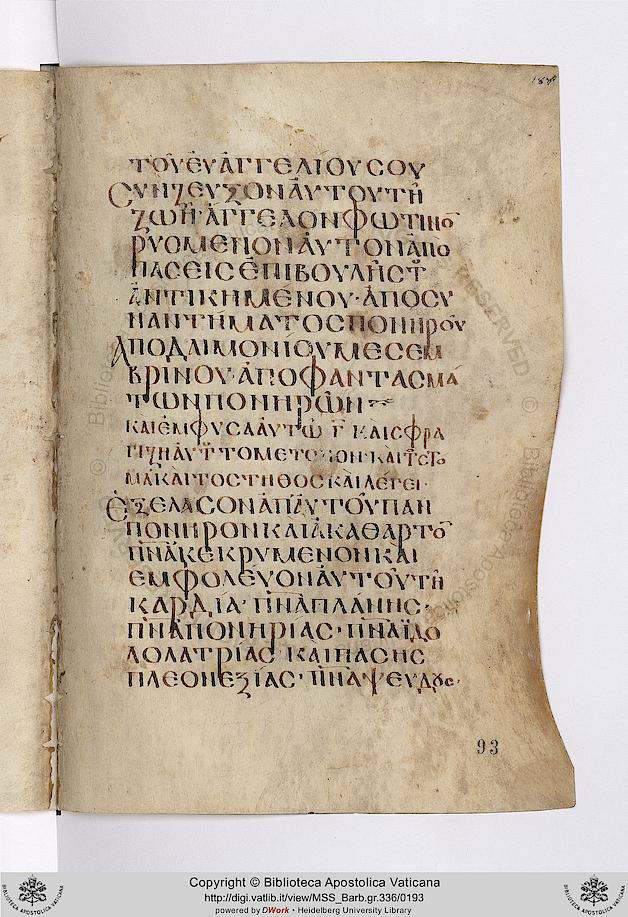 ΤΟΥ ΕΥΑΓΓΕΛΙΟΥ ΣΟΥ
ΣΥΝΖΕΥΞΟΝ ΑΥΤΟΥ ΤΗ
ΖΩΗ ΑΓΓΕΛΟΝ ΦΩΤΙΝΟ
ΡΥΟΜΕΝΟΝ ΑΥΤΟΝ ΑΠΟ
ΠΑΣΕΙΣ ΕΠΙΒΟΥΛΗΣ Τ
ΑΝΤΙΚΗΜΕΝΟΥ· ΑΠΟ ΣΥ
ΝΑΝΤΗΜΑΤΟΣ ΠΟΝΗΡΟΥ
ΑΠΟ ΔΑΙΜΟΝΙΟΥ ΜΕΣΕΜ
ΒΡΙΝΟΥ· ΑΠΟ ΦΑΝΤΑΣΜΑ
ΤΩΝ ΠΟΝΗΡΩΝ
ΚΑΙ ΕΜΦΥΣΑ ΑΥΤΩ Γ ΚΑΙ ΣΦΡΑ
ΓΙΖΗ ΑΥΤ ΤΟ ΜΕΤΟΠΟΝ· ΚΑΙ Τ ΣΤΟ
ΜΑ ΚΑΙ ΤΟ ΣΤΗΘΟΣ ΚΑΙ ΛΕΓΕΙ·
ΕΞΕΛΑΣΟΝ ΑΠ ΑΥΤΟΥ ΠΑΝ
ΠΟΝΗΡΟΝ ΚΑΙ ΑΚΑΘΑΡΤΟ
ΠΝΑ ΚΕΚΡΥΜΕΝΟΝ ΚΑΙ
ΕΜΦΟΛΕΥΟΝ ΑΥΤΟΥ ΤΗ
ΚΑΡΔΙΑ· ΠΝΑ ΠΛΑΝΗΣ·
ΠΝΑ ΠΟΝΗΡΙΑΣ· ΠΝΑ ΪΔΟ
ΛΟΛΑΤΡΙΑΣ ΚΑΙ ΠΑΣΗΣ
ΠΛΕΟΝΕΞΙΑΣ· ΠΝΑ ΨΕΥΔΟΥΣ·
93
Copyright © Biblioteca Apostolica Vaticana
http://digi.vatlib.it/view/MSS_Barb.gr.336/0193
powered by DWork • Heidelberg University Library